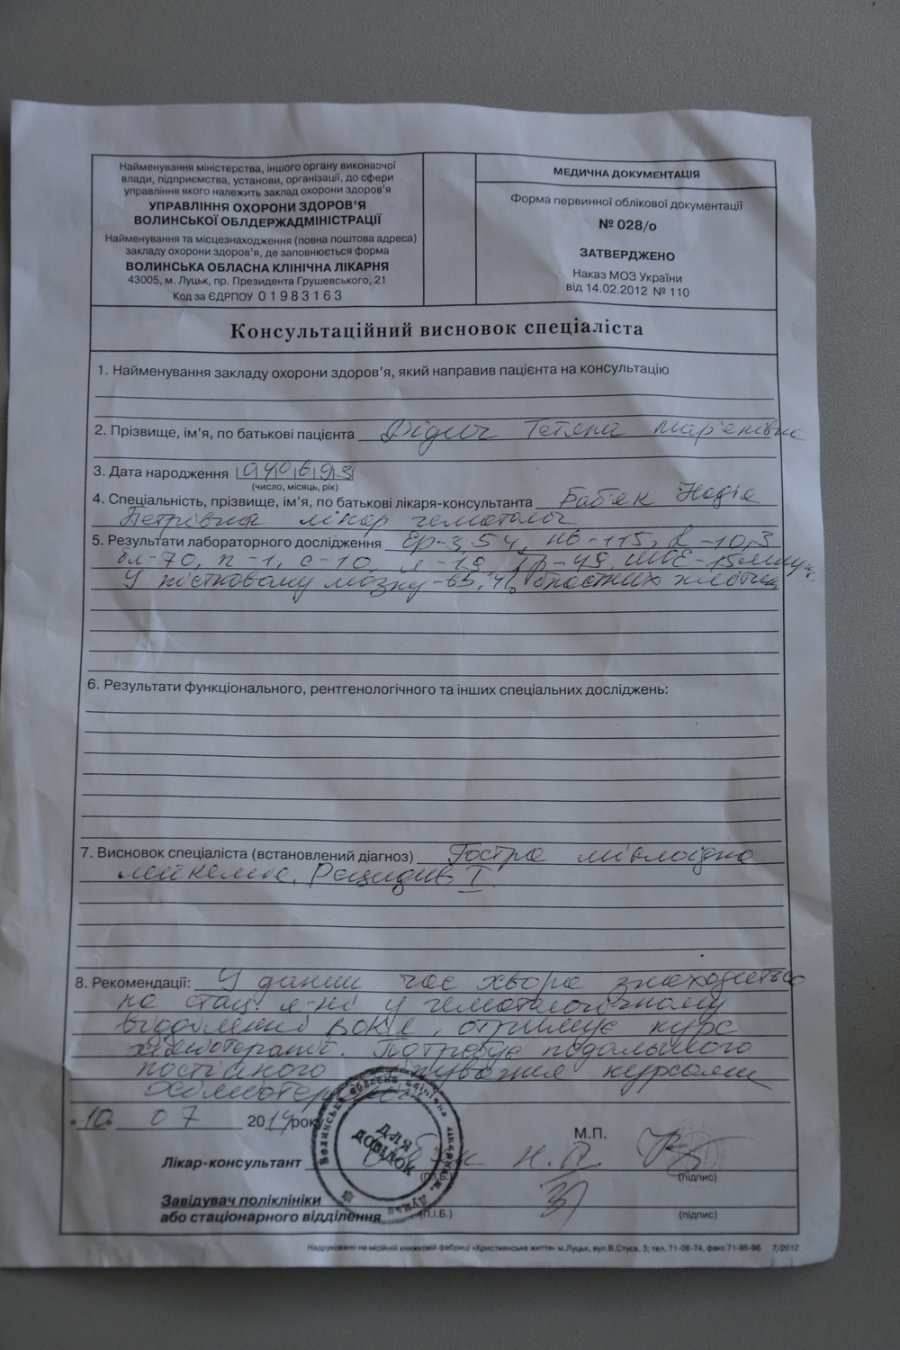 Найменування міністерства, іншого органу виконавчої
влади, підприємства, установи, організації, до сфери
управління якого належить заклад охорони здоров'я
УПРАВЛІННЯ ОХОРОНИ ЗДОРОВ'Я
ВОЛИНСЬКОЇ ОБЛДЕРЖАДМІНІСТРАЦІЇ
Найменування та місцезнаходження (повна поштова адреса)
закладу охорони здоров'я, де заповнюється форма
ВОЛИНСЬКА ОБЛАСНА КЛІНІЧНА ЛІКАРНЯ
43005, м. Луцьк, пр. Президента Грушевського, 21
Код за ЄДРПОУ 0 1 9 8 3 1 6 3
МЕДИЧНА ДОКУМЕНТАЦІЯ
Форма первинної облікової документації
№ 028/о
ЗАТВЕРДЖЕНО
Наказ МОЗ України
від 14.02.2012 № 110
Консультаційний висновок спеціаліста
1. Найменування закладу охорони здоров'я, який направив пацієнта на консультацію
2. Прізвище, ім'я, по батькові пацієнта Тетяна Мар'янівна
3. Дата народження
(число, місяць, рік)
4. Спеціальність, прізвище, ім'я, по батькові лікаря-консультанта Бабяк Надія
Петрівна лікар гематолог
5. Результати лабораторного дослідження Ер-3,54, Нв-115, L-10,3
бл-70, п-1, с-10, л-19, тр-49, ШОЕ-15мм/г
У кістковому мозку бластних клітин
6. Результати функціонального, рентгенологічного та інших спеціальних досліджень:
7. Висновок спеціаліста (встановлений діагноз) Гостра мієлоїдна
лейкемія. Рецидив I.
8. Рекомендації: У даний час хвора знаходиться
на стац. л-ні у гематологічному
відділенні ВОКЛ, отримує курс
хіміотерапії. Потребує подальшого
постійного лікування курсами
хіміотерапії
"10" 07 2014 року
М.П.
Лікар-консультант Бабяк Н.П.
(П.І.Б.) (підпис)
Завідувач поліклініки
або стаціонарного відділення
(П.І.Б.) (підпис)
ДЛЯ
ДОВІДОК
Надруковано на місійній книжковій фабриці «Християнське життя» м.Луцьк, вул.В.Стуса, 3; тел. 71-08-74, факс 71-95-96 7/2012